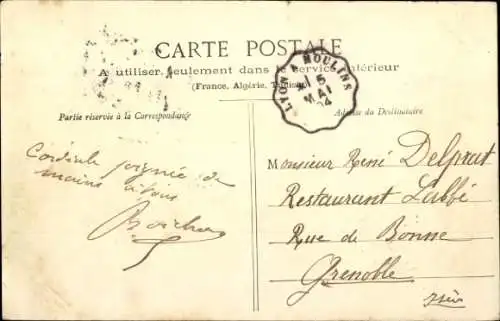 CARTE POSTALE
A utiliser seulement dans le service intérieur
(France, Algérie, Tunisie)
Partie réservée à la Correspondance
Adresse du Destinataire
LYON A MOULINS
5
MAI
04
Cordiale poignée de
mains à tous
Monsieur René Delprat
Restaurant Labbé
Rue de Bonne
Grenoble
Isère